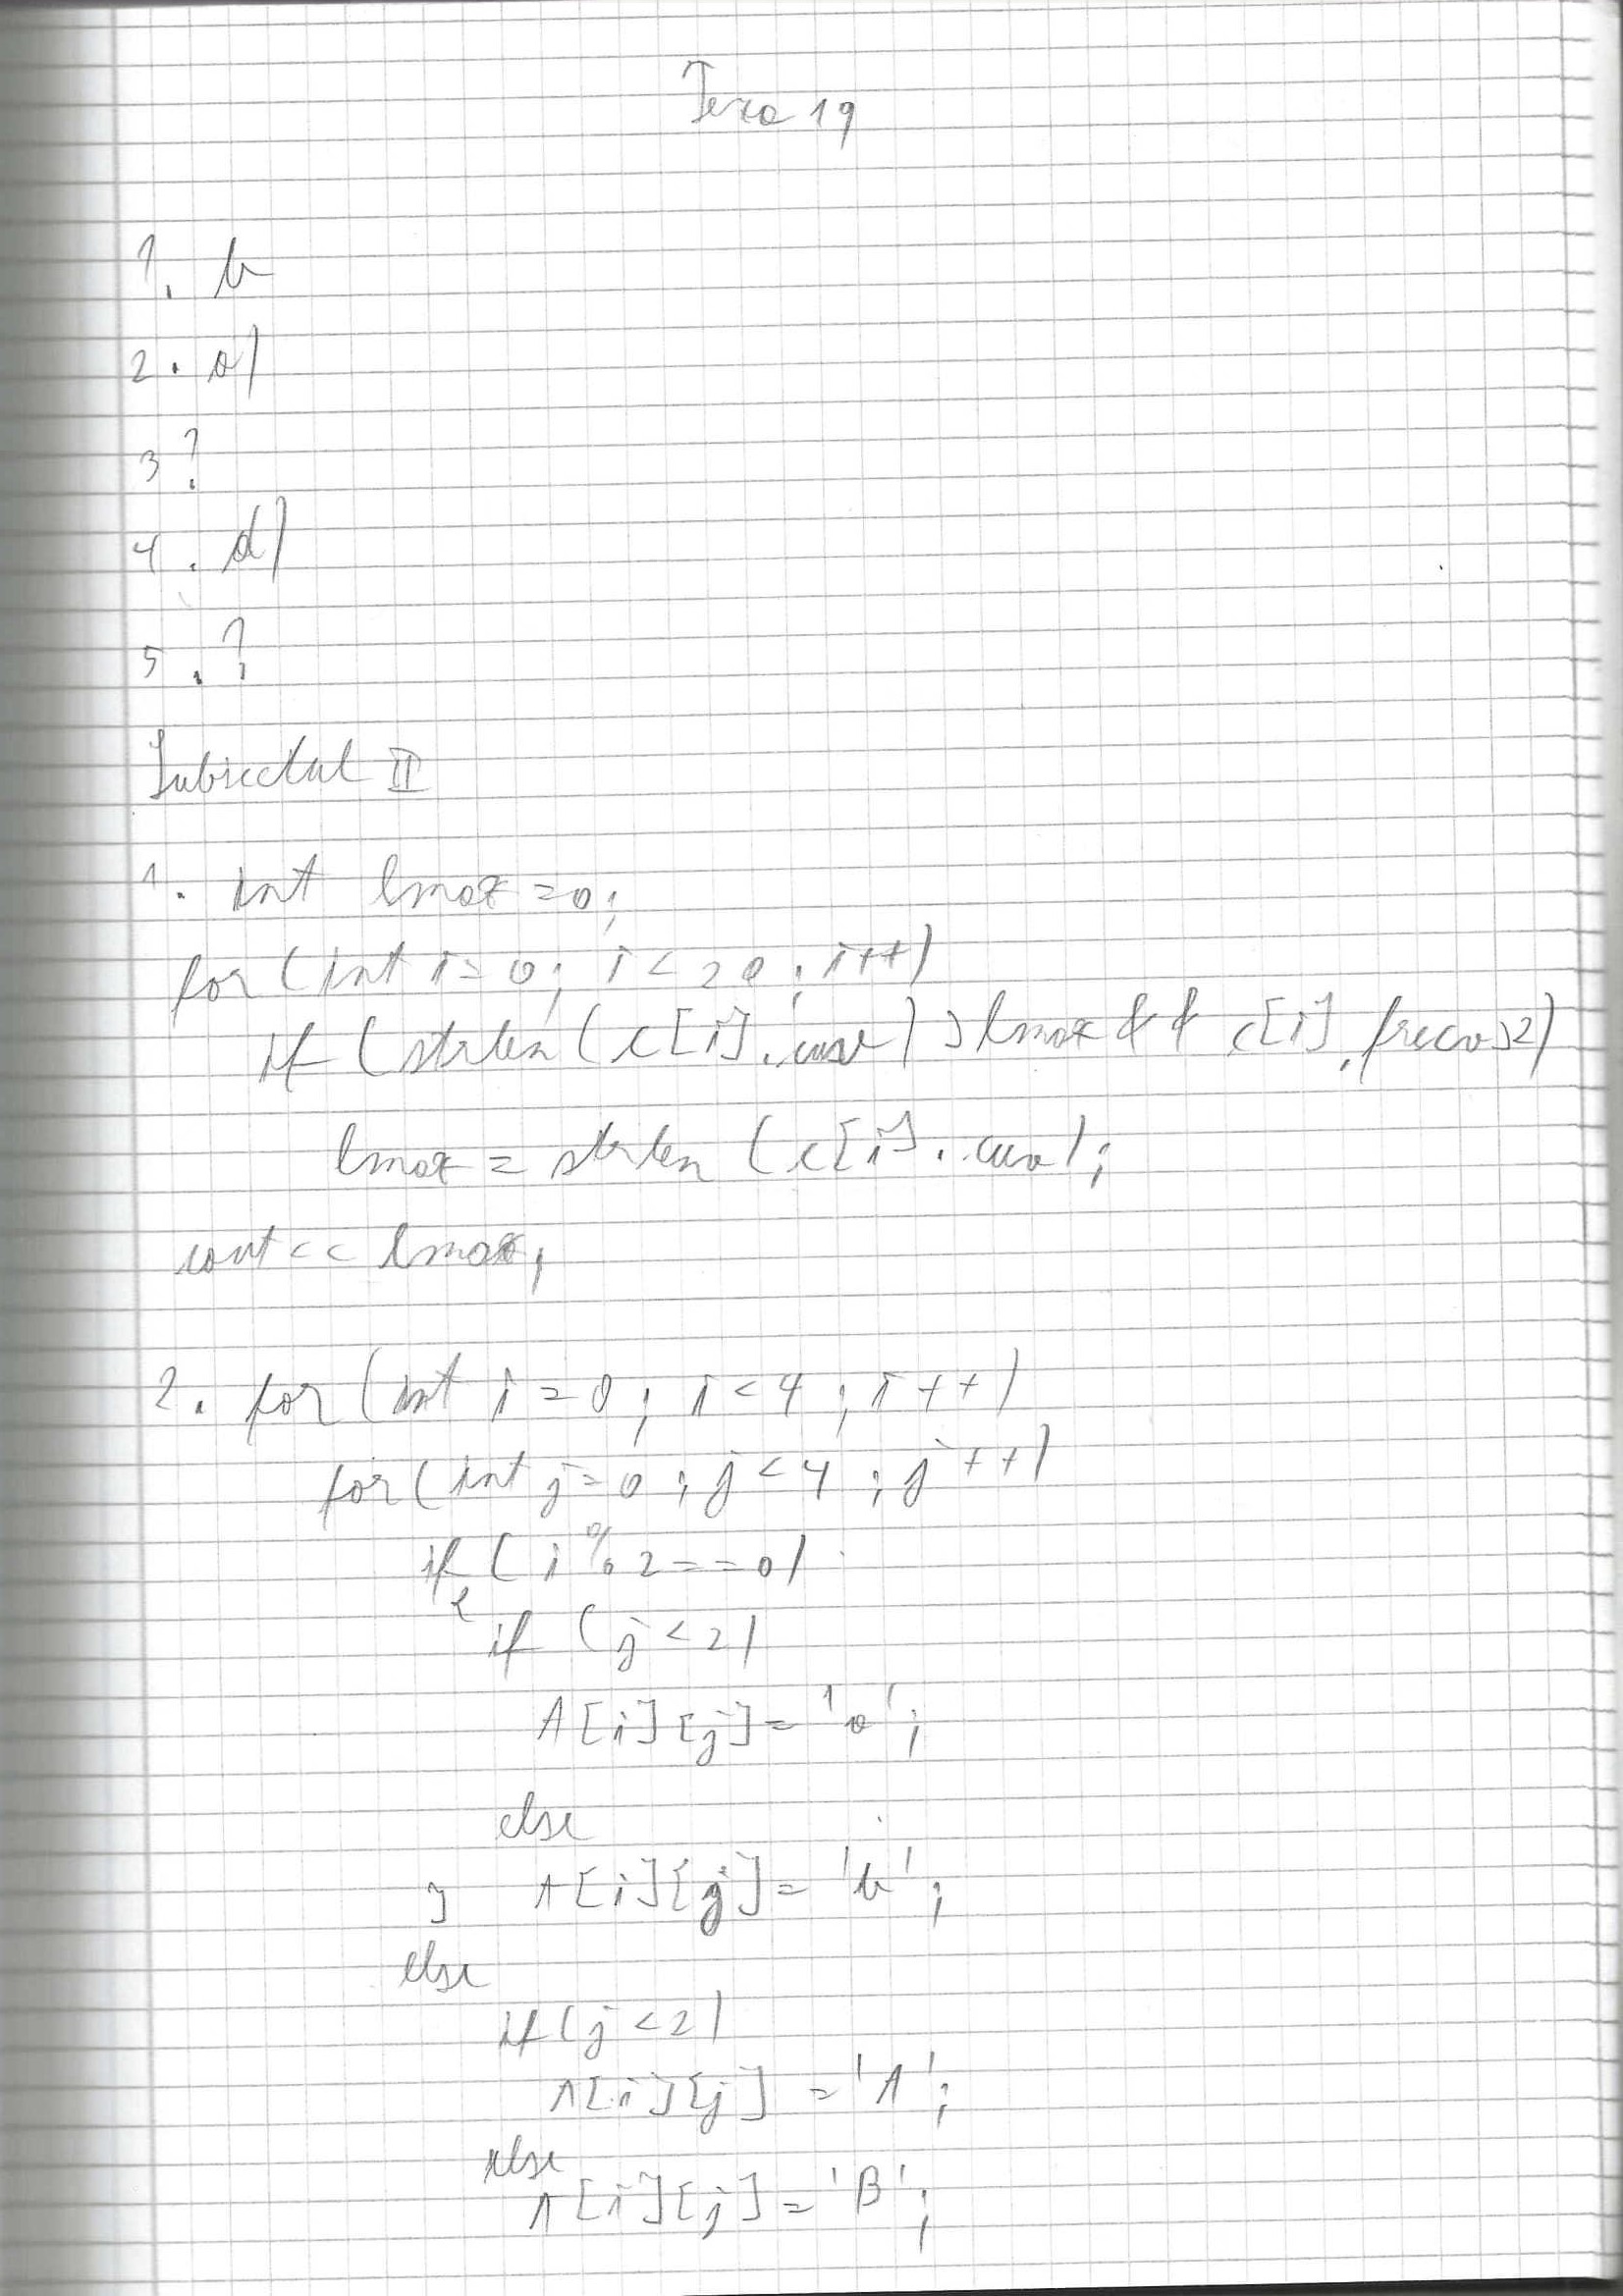 Tema 19
1. b
2. a)
3 ?
4. d)
5. ?
Subiectul II
1. int lmax=0;
for (int i=0; i<20; i++)
if (strlen(c[i].cuv)>lmax && c[i].frecv>2)
lmax = strlen (c[i].cuv);
cout<< lmax;
2. for (int i=0; i<4; i++)
for (int j=0; j<4; j++)
if (i%2==0)
{
if (j<2)
A[i][j]='a';
else
} A[i][j]='b';
else
if (j<2)
A[i][j]='A';
else
A[i][j]='B';